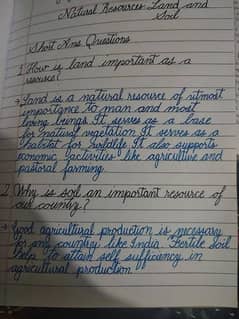 Natural Resources Land and
Soil
Short Ans. Questions
1. How is land important as a
resource?
→ Land is a natural resource of utmost
importance to man and most
living beings. It serves as a base
for natural vegetation. It serves as a
habitat for wildlife. It also supports
economic activities like agriculture and
pastoral farming.
2. Why is soil an important resource of
our country?
→ Good agricultural production is necessary
for any country like India. Fertile soil
help to attain self sufficiency in
agricultural production.